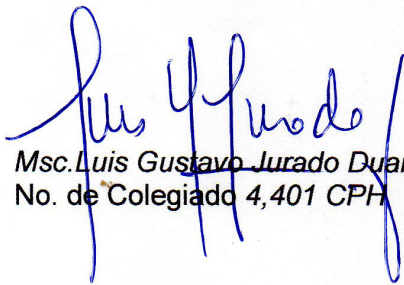 Luis G Jurado
Msc.Luis Gustavo Jurado Duar
No. de Colegiado 4,401 CPH